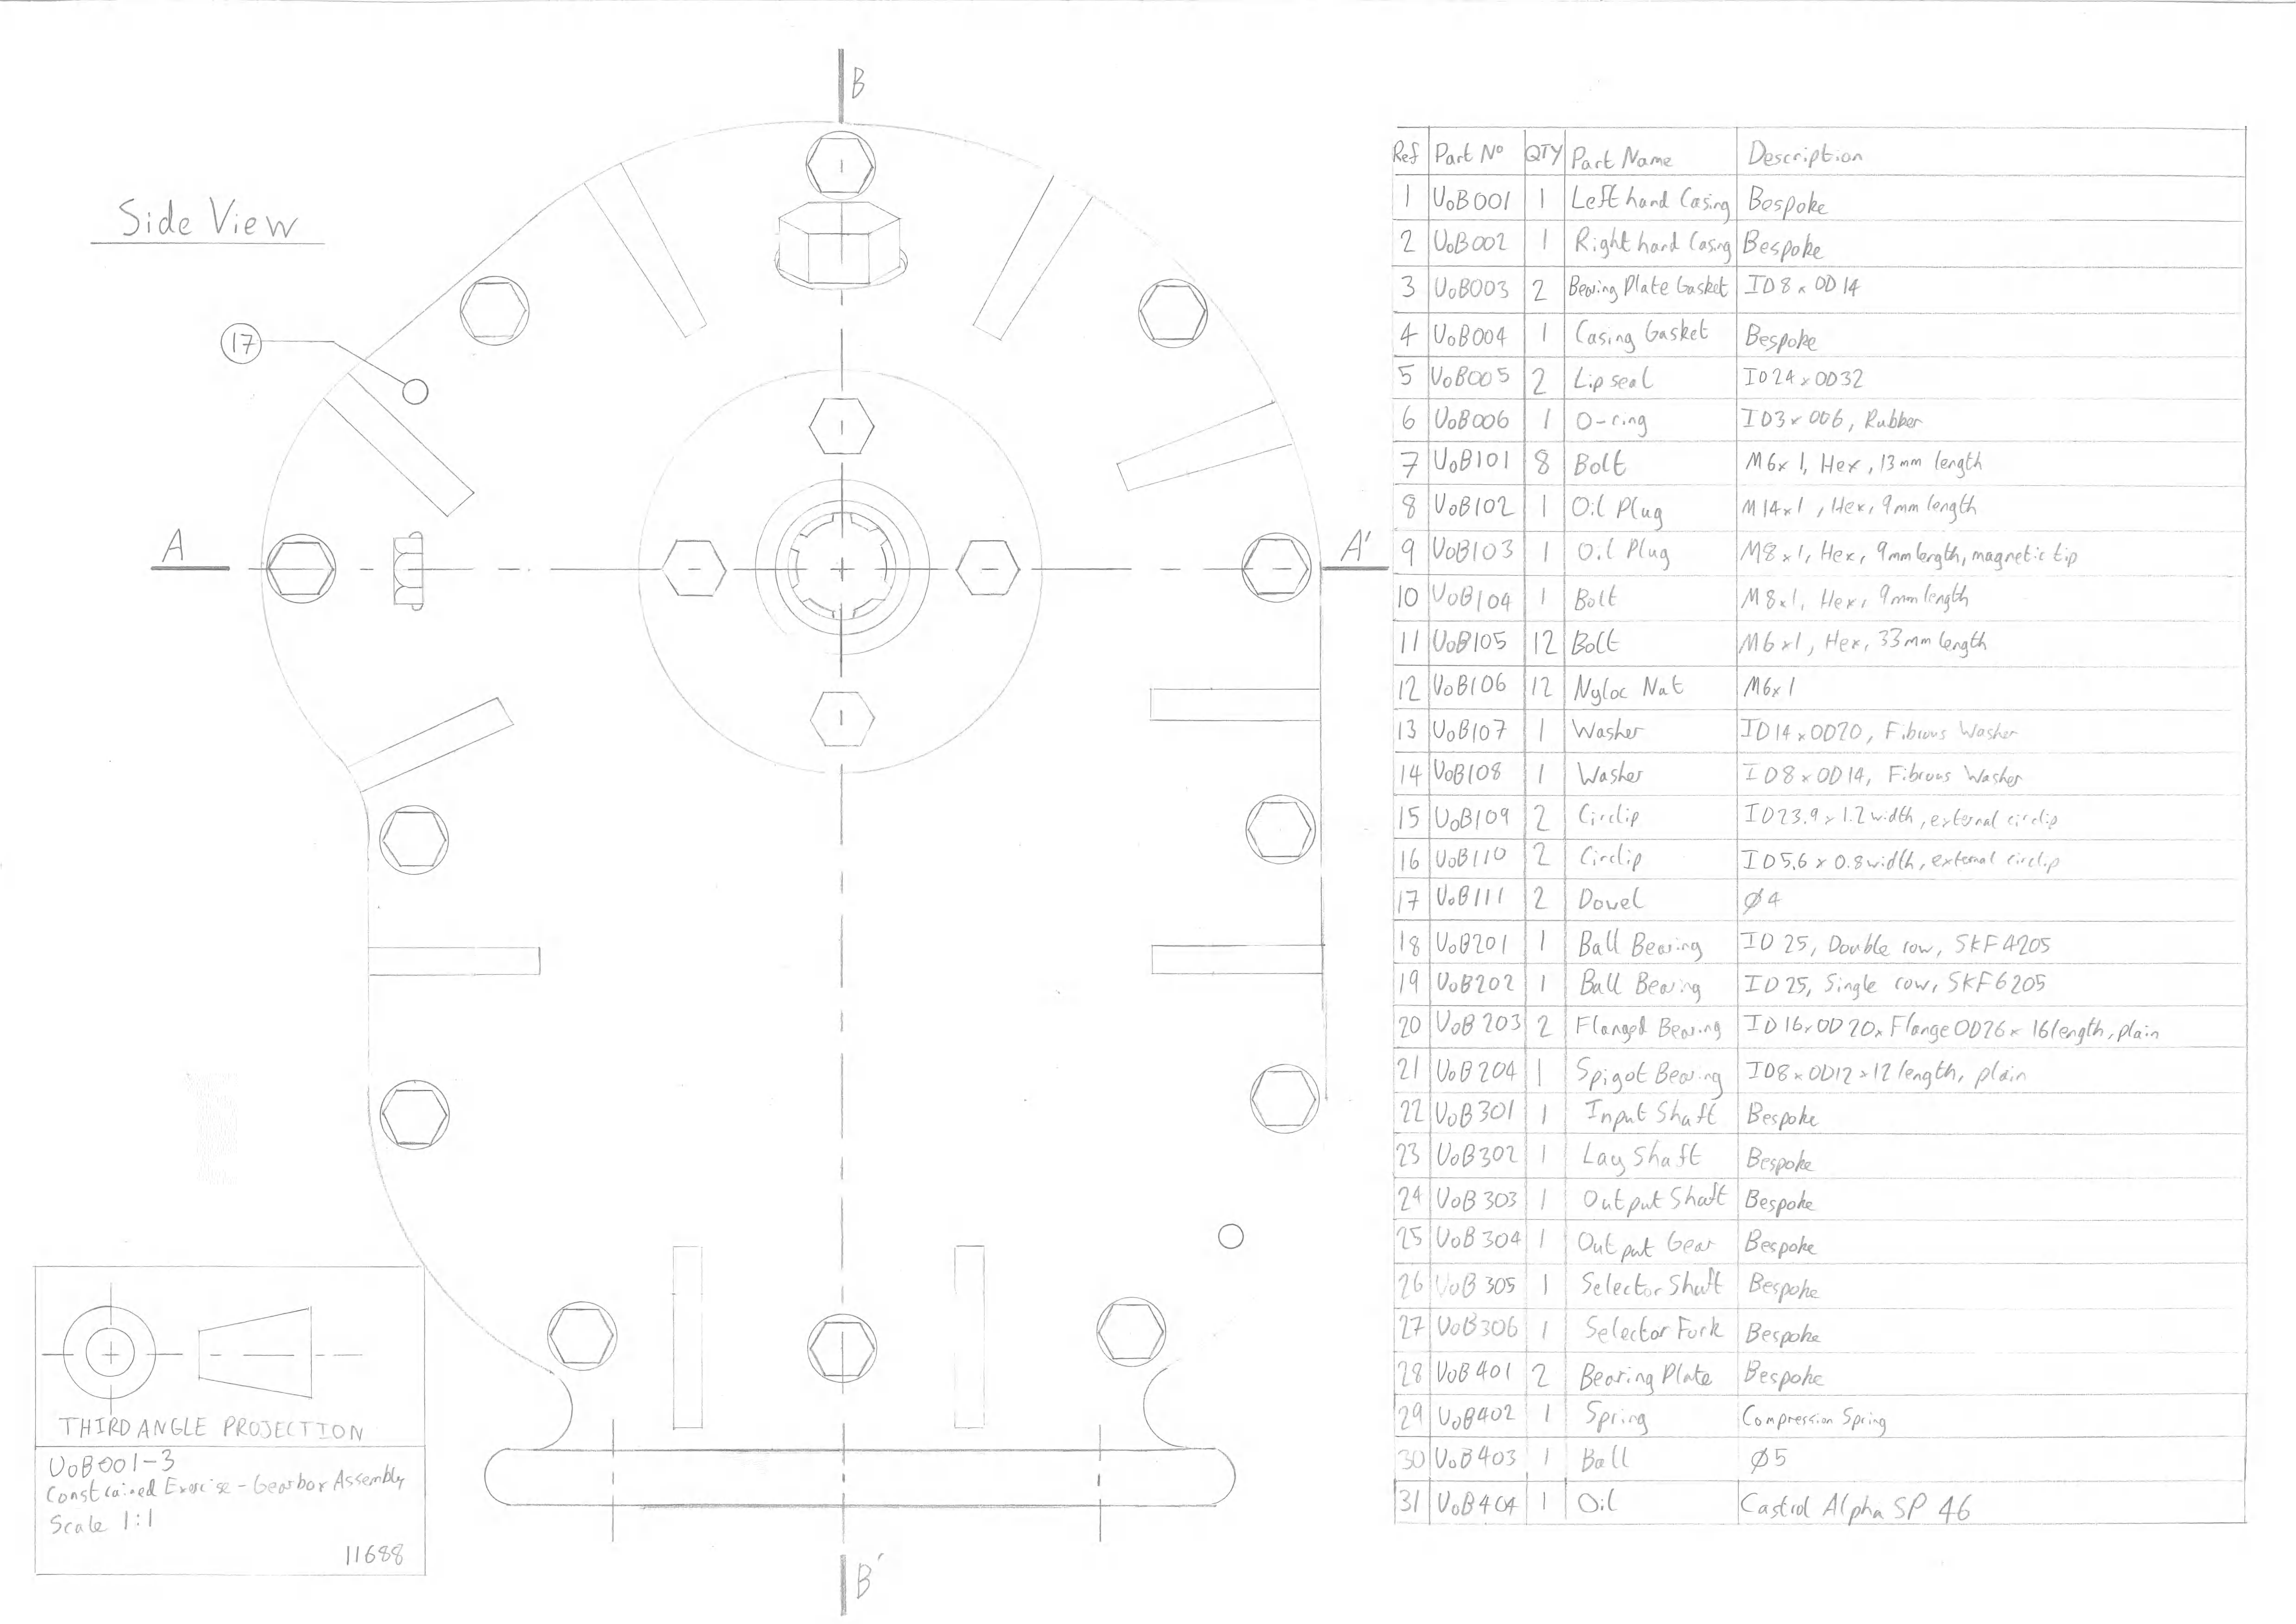 B
Side View
17
A
A'
B'
THIRD ANGLE PROJECTION
UoB001-3
Constrained Exercise - Gearbox Assembly
Scale 1:1
11688
Ref Part No QTY Part Name Description
1 UoB001 1 Left hand Casing Bespoke
2 UoB002 1 Right hand Casing Bespoke
3 UoB003 2 Bearing Plate Gasket ID8 x OD14
4 UoB004 1 Casing Gasket Bespoke
5 UoB005 2 Lip seal ID24 x OD32
6 UoB006 1 O-ring ID3 x OD6, Rubber
7 UoB101 8 Bolt M6x1, Hex, 13mm length
8 UoB102 1 Oil Plug M14x1, Hex, 9mm length
9 UoB103 1 Oil Plug M8x1, Hex, 9mm length, magnetic tip
10 UoB104 1 Bolt M8x1, Hex, 9mm length
11 UoB105 12 Bolt M6x1, Hex, 33mm length
12 UoB106 12 Nyloc Nut M6x1
13 UoB107 1 Washer ID14 x OD20, Fibrous Washer
14 UoB108 1 Washer ID8 x OD14, Fibrous Washer
15 UoB109 2 Circlip ID23.9 x 1.2 width, external circlip
16 UoB110 2 Circlip ID5.6 x 0.8 width, external circlip
17 UoB111 2 Dowel Ø4
18 UoB201 1 Ball Bearing ID 25, Double row, SKF4205
19 UoB202 1 Ball Bearing ID25, Single row, SKF6205
20 UoB203 2 Flanged Bearing ID16 x OD20 x Flange OD26 x 16 length, plain
21 UoB204 1 Spigot Bearing ID8 x OD12 x 12 length, plain
22 UoB301 1 Input Shaft Bespoke
23 UoB302 1 Lay Shaft Bespoke
24 UoB303 1 Output Shaft Bespoke
25 UoB304 1 Output Gear Bespoke
26 UoB305 1 Selector Shaft Bespoke
27 UoB306 1 Selector Fork Bespoke
28 UoB401 2 Bearing Plate Bespoke
29 UoB402 1 Spring Compression Spring
30 UoB403 1 Ball Ø5
31 UoB404 1 Oil Castrol Alpha SP 46